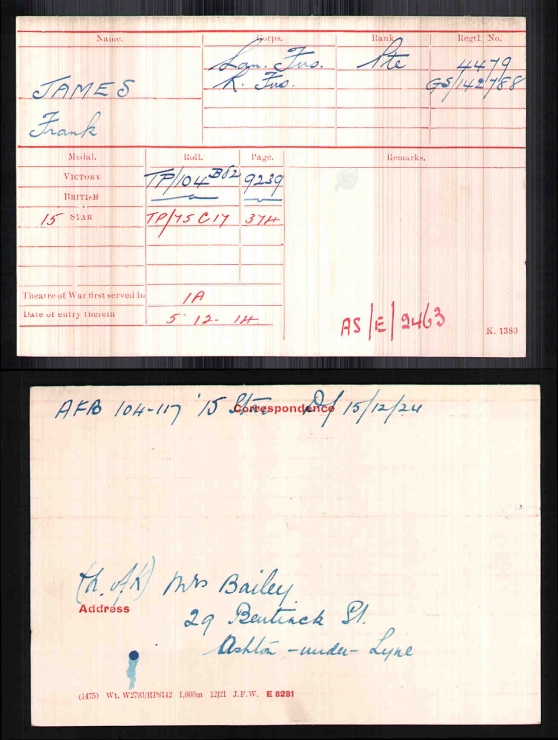 Name. Corps. Rank Regtl. No.
JAMES Lan. Fus. Pte 4479
R. Fus. GS/142788
Frank
Medal. Roll. Page. Remarks.
VICTORY TP/104 B82 9239
BRITISH
15 STAR TP/75 C17 374
Theatre of War first served in 1A
Date of entry therein 5-12-14
AS/E/2463
K. 1380
AFB 104-117 '15 Star Df 15/12/24
Correspondence
(N. of K) Mrs Bailey
Address
29 Bentinck St.
Ashton-under-Lyne
(1475) Wt. W2703/RP6142 1,000m 12/21 J.F.W. E 8281